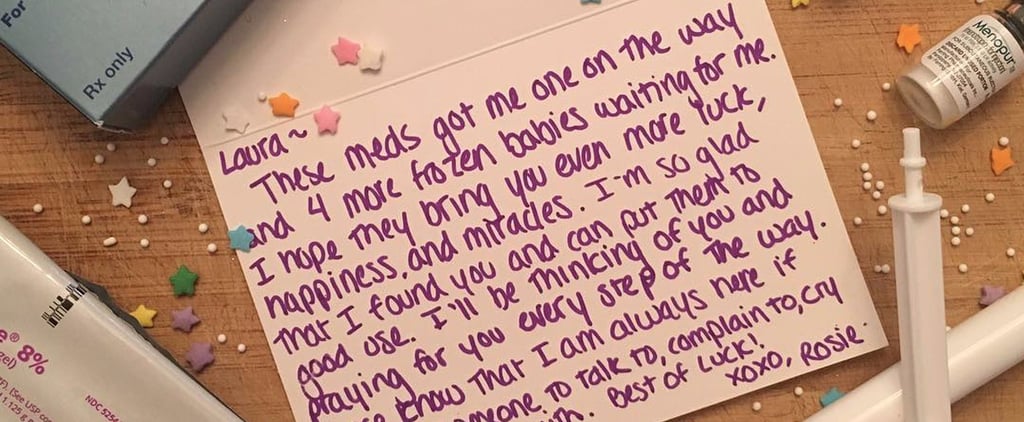 For
Rx only
Laura~
These meds got me one on the way
and 4 more frozen babies waiting for me.
I hope they bring you even more luck,
happiness, and miracles. I'm so glad
that I found you and can put them to
good use. I'll be thinking of you and
praying for you every step of the way.
know that I am always here if
to talk to, complain to, cry
Best of Luck!
xoxo, Rosie.
Menopur
8%
gel)
NDC 5254